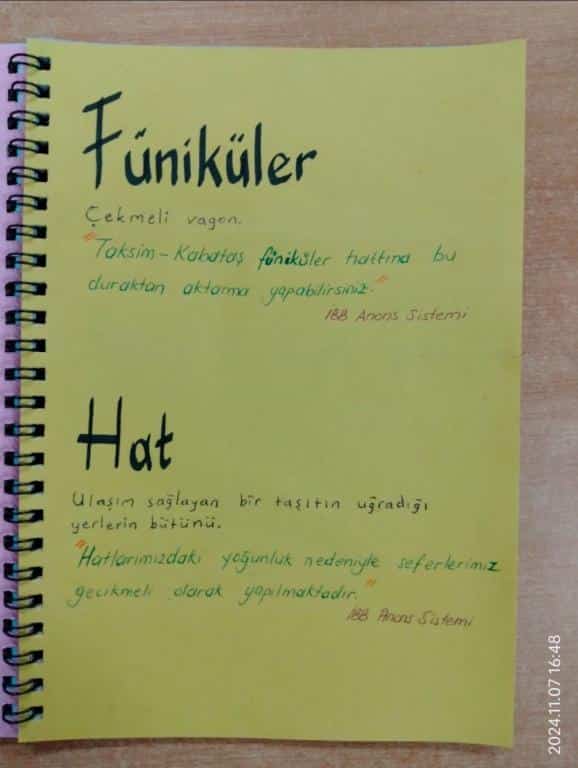 Füniküler
Çekmeli vagon.
"Taksim-Kabataş füniküler hattına bu
duraktan aktarma yapabilirsiniz."
İBB Anons Sistemi
Hat
Ulaşım sağlayan bir taşıtın uğradığı
yerlerin bütünü.
"Hatlarımızdaki yoğunluk nedeniyle seferlerimiz
gecikmeli olarak yapılmaktadır."
İBB Anons Sistemi
2024.11.07 16:48